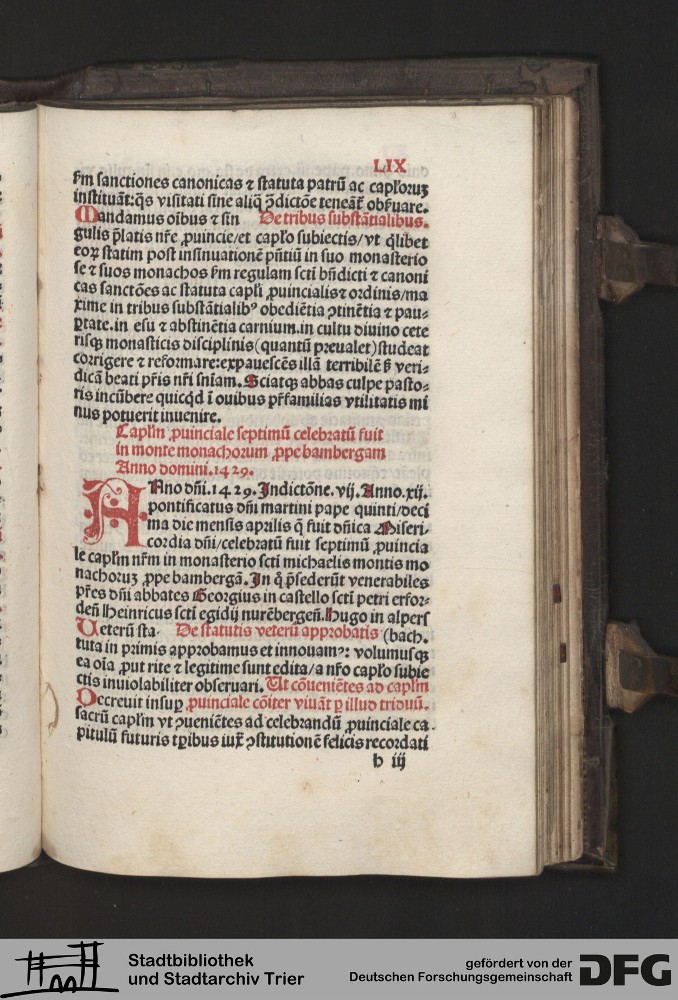 LIX
s̃m sanctiones canonicas ⁊ statuta patrū ac capl'oruꝫ
instituāt:q̄s visitati sine aliq̄ ꝯdictōe teneāt̃ obẜuare.
Mandamus oībus ⁊ sin De tribus substātialibus.
gulis p̄latis nr̄e ꝓuincie/et capl'o subiectis/vt q̄libet
eoꝝ statim post insinuationē p̄ntiū in suo monasterio
se ⁊ suos monachos s̄m regulam scti bn̄dicti ⁊ canoni
cas sanctōes ac statuta capl'i ꝓuincialis ⁊ ordinis/ma
xime in tribus substātialibꝰ obediētia ꝯtinētia ⁊ pau⸗
ꝑtate.in esu ⁊ abstinētia carnium.in cultu diuino cete
risqꝫ monasticis disciplinis(quantū preualet)studeat
corrigere ⁊ reformare:expauescēs illā terribilē ẜ veri⸗
dicā beati pr̄is nr̄i sniam. Sciatqꝫ abbas culpe pasto⸗
ris incūbere quicqd̄ ī ouibus pr̄familias vtilitatis mi
nus potuerit inuenire.
Capl'm ꝓuinciale septimū celebratū fuit
in monte monachorum ꝓpe bambergam
Anno domini.1429.
ANno dn̄i.1429.Indictōne.vij.Anno.xij.
pontificatus dn̄i martini pape quinti/deci
ma die mensis aprilis q̄ fuit dn̄ica Miseri⸗
cordia dn̄i/celebratū fuit septimū ꝓuincia
le capl'm nr̄m in monasterio scti michaelis montis mo
nachoruꝫ ꝓpe bambergā. In q̄ p̄sederūt venerabiles
pr̄es dn̄i abbates Georgius in castello scti petri erfor⸗
deñ Heinricus scti egidij nurēbergeñ.Hugo in alpers
Ueterū sta⸗ De statutis veterū approbatis (bach.
tuta in primis approbamus et innouamꝰ: volumusqꝫ
ea oīa ꝓut rite ⁊ legitime sunt edita/a nr̄o capl'o subie
ctis inuiolabiliter obseruari. Ut cōueniētes ad capl'm
Decreuit insuꝑ ꝓuinciale cōiter viuāt ꝑ illud triduū.
sacrū capl'm vt ꝯueniētes ad celebrandū ꝓuinciale ca⸗
pitulū futuris tꝑibus iuxᷓ ꝯstitutionē felicis recordati
h iij
Stadtbibliothek
und Stadtarchiv Trier
gefördert von der
Deutschen Forschungsgemeinschaft
DFG